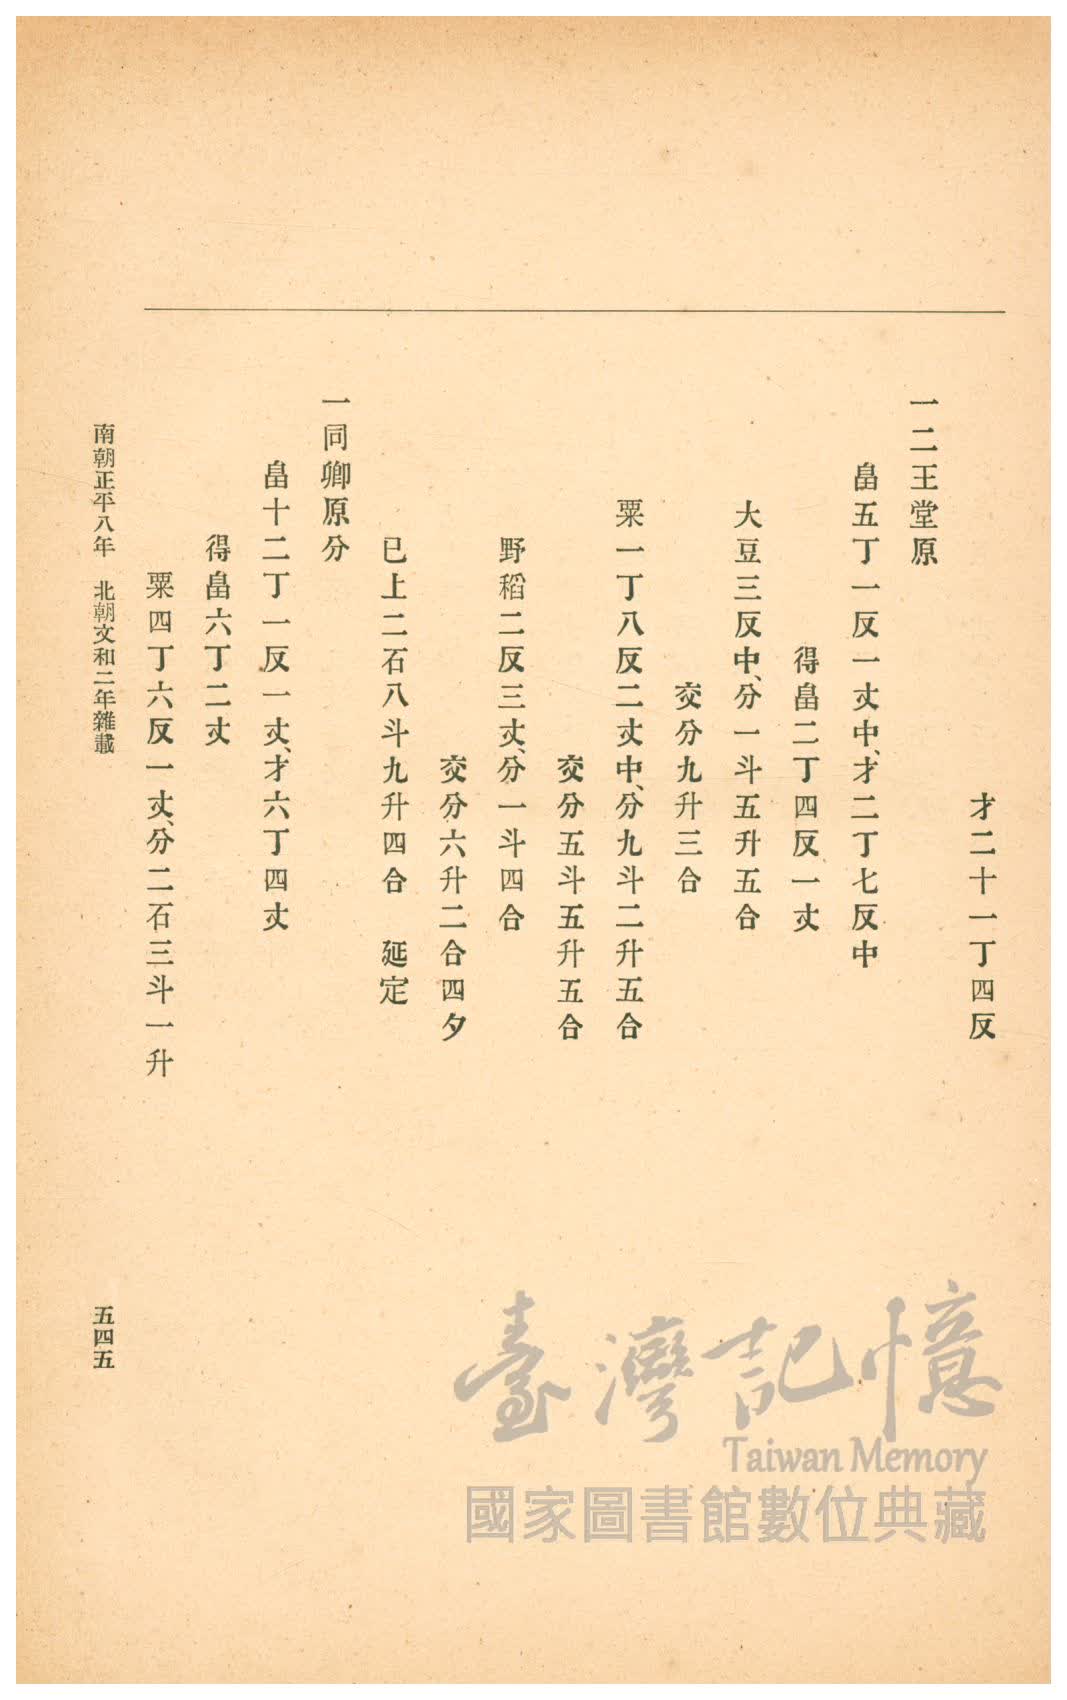 才二十一丁四反
一二王堂原
畠五丁一反一丈中、才二丁七反中
得畠二丁四反一丈
大豆三反中、分一斗五升五合
交分九升三合
粟一丁八反二丈中、分九斗二升五合
交分五斗五升五合
野稻二反三丈、分一斗四合
交分六升二合四夕
已上二石八斗九升四合　延定
一同卿原分
畠十二丁一反一丈、才六丁四丈
得畠六丁二丈
粟四丁六反一丈、分二石三斗一升
南朝正平八年　北朝文和二年雜載
五四五
臺灣記憶
Taiwan Memory
國家圖書館數位典藏